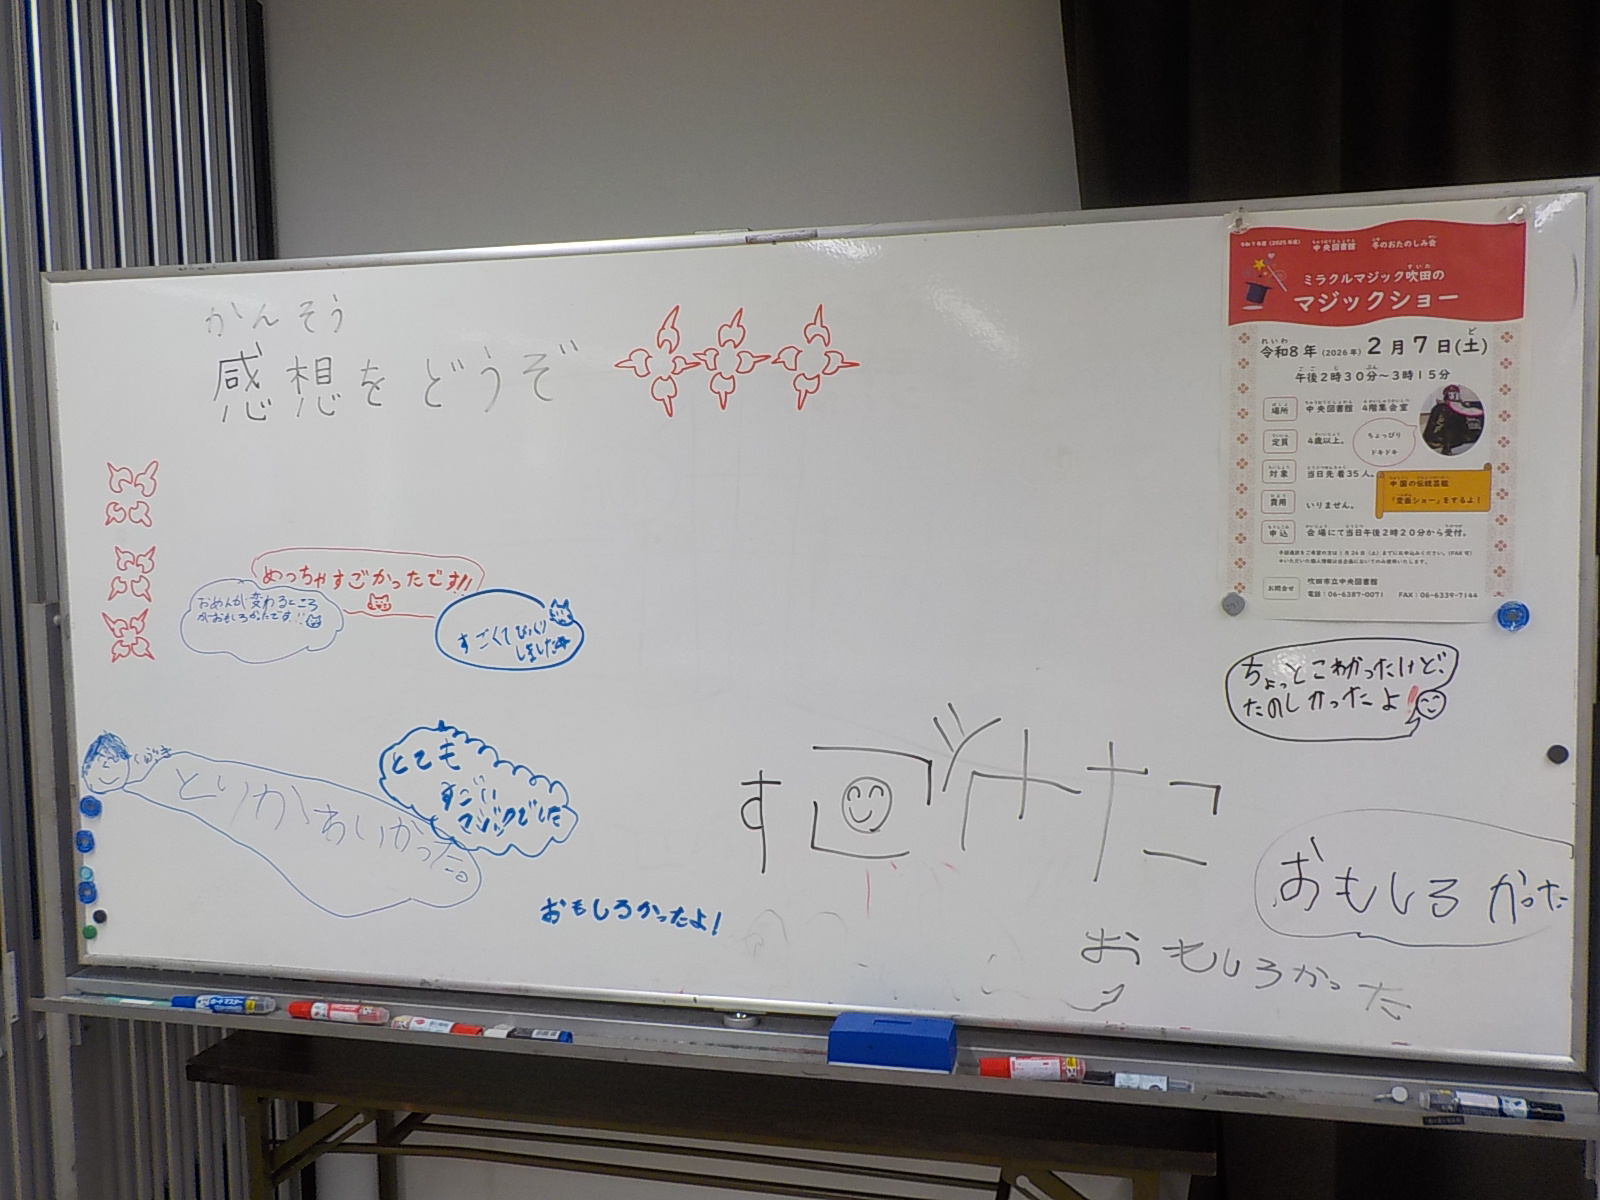 かんそう
感想をどうぞ
めっちゃすごかったです!!
おめんが変わるところ
がおもしろかったです!!
すごくてびっくり
しました
とても
すごい
マジックでした
おもしろかったよ!
ちょっとこわかったけど、
たのしかったよ!
おもしろかった
おもしろかった
令和7年度(2025年度)
中央図書館 冬のおたのしみ会
ミラクルマジック吹田の
マジックショー
令和8年(2026年)2月7日(土)
午後2時30分~3時15分
場所 中央図書館 4階集会室
定員 4歳以上。
対象 当日先着35人。
費用 いりません。
申込 会場にて当日午後2時20分から受付。
ちょっぴり
ドキドキ
中国の伝統芸能
「変面ショー」をするよ!
お問合せ 吹田市立中央図書館
電話:06-6387-0071 FAX:06-6339-7144